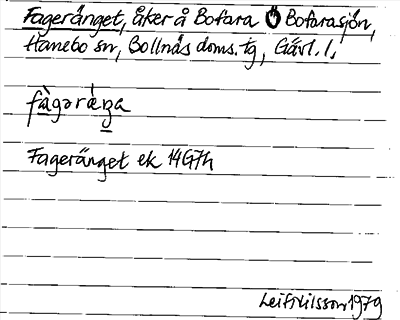 Fageränget, åker å Bofara Ö Bofarasjön,
Hanebo sn, Bollnäs doms. tg, Gävl. l,
fàgəräŋa
Fageränget ek 14G7h
Leif Nilsson 1979